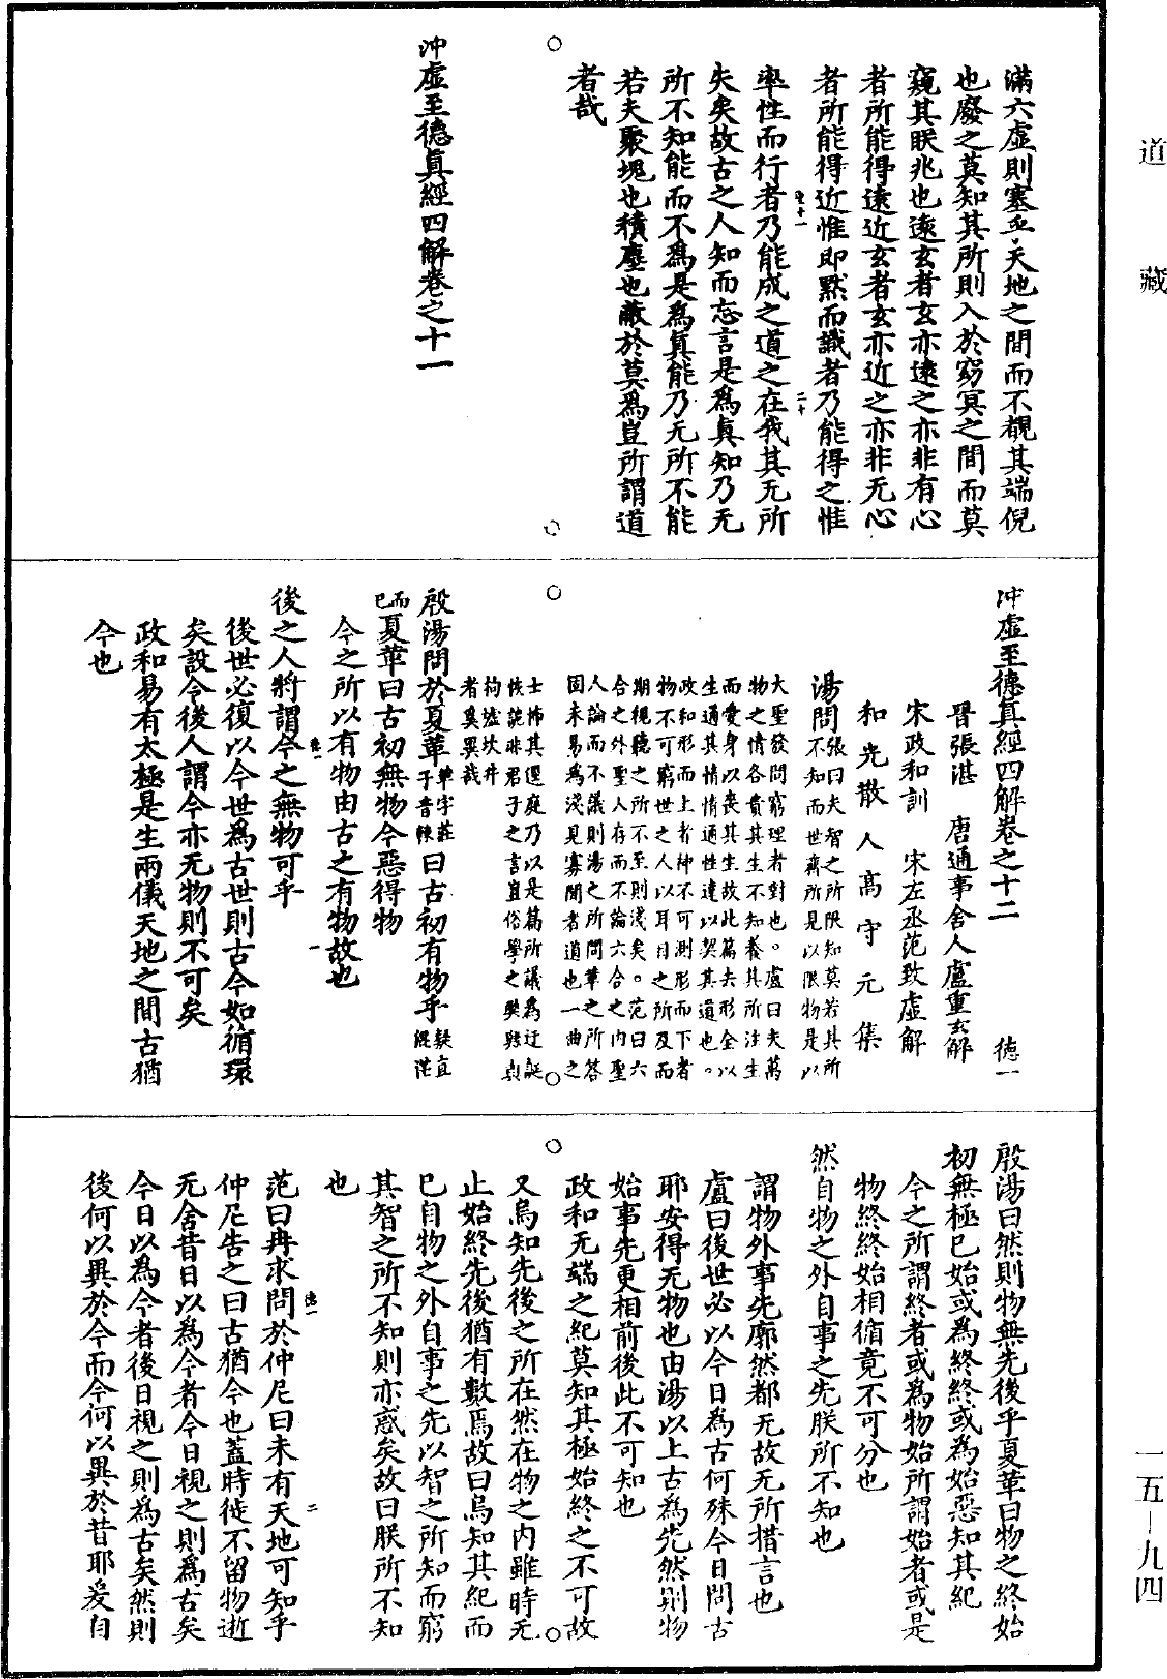 道藏
滿六虛則塞乎天地之間而不覩其端倪
也廢之莫知其所則入於窈冥之間而莫
窺其朕兆也遠玄者玄亦遠之亦非有心
者所能得遠近玄者玄亦近之亦非无心
者所能得近惟即默而識者乃能得之惟
率性而行者乃能成之道之在我其无所
失矣故古之人知而忘言是爲眞知乃无
所不知能而不爲是爲眞能乃无所不能
若夫聚塊也積塵也蔽於莫爲豈所謂道
者哉
冲虛至德眞經四解卷之十一
冲虛至德眞經四解卷之十二 德一
晉張湛 唐通事舍人盧重玄解
宋政和訓 宋左丞范致虛解
和光散人高守元集
湯問張曰夫智之所限知莫若其所
不知而世齊所見以限物是以
大聖發問窮理者對也。盧曰夫萬
物之情各貴其生不知養其所注生
而愛身以喪其生故此篇去形全以
生通其情情通性達以契其道也。
政和形而上者神不可測形而下者
物不可窮世之人以耳目之所及而
期視聽之所不至則淺矣。范曰六
合之外聖人存而不論六合之內聖
人論而不議則湯之所問革之所答
固未易爲淺見寡聞者道也一曲之
士怖其逕庭乃以是篇所議爲迂誕
恢詭非君子之言豈俗學之與點
拘墟坎井
者奚異哉
殷湯問於夏革革字莊子音棘曰古初有物乎疑直混茫
而已夏革曰古初無物今惡得物
今之所以有物由古之有物故也
後之人將謂今之無物可乎
後世必復以今世爲古世則古今如循環
矣設令後人謂今亦无物則不可矣
政和易有太極是生兩儀天地之間古猶
今也
殷湯曰然則物無先後乎夏革曰物之終始
初無極已始或為終終或為始惡知其紀
今之所謂終者或為物始所謂始者或是
物終終始相循竟不可分也
然自物之外自事之先朕所不知也
謂物外事先廓然都无故无所措言也
盧曰後世必以今日為古何殊今日問古
耶安得无物也由湯以上古為先然則物
始事先更相前後此不可知也
政和无端之紀莫知其極始終之不可故
又烏知先後之所在然在物之內雖時无
止始終先後猶有數焉故曰烏知其紀而
已自物之外自事之先以智之所知而窮
其智之所不知則亦惑矣故曰朕所不知
也
范曰冉求問於仲尼曰未有天地可知乎
仲尼告之曰古猶今也蓋時徙不留物逝
无舍昔日以為今者今日視之則為古矣
今日以為今者後日視之則為古矣然則
後何以異於今而今何以異於昔耶爰自
一五—九四